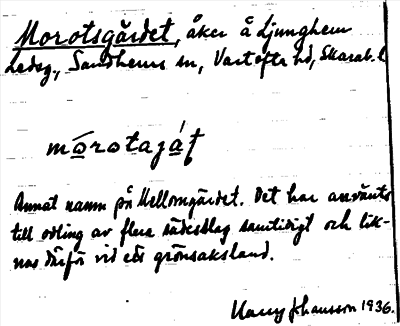 Morotsgärdet, åker å Ljunghem
Ledsg., Sandhems sn, Vartofta hd, Skarab. l
mòrotajáṭ
Annat namn på Mellomgärdet. Det har använts
till odling av flera sädesslag samtidigt och lik-
nas därför vid ett grönsaksland.
Harry Johansson 1936.